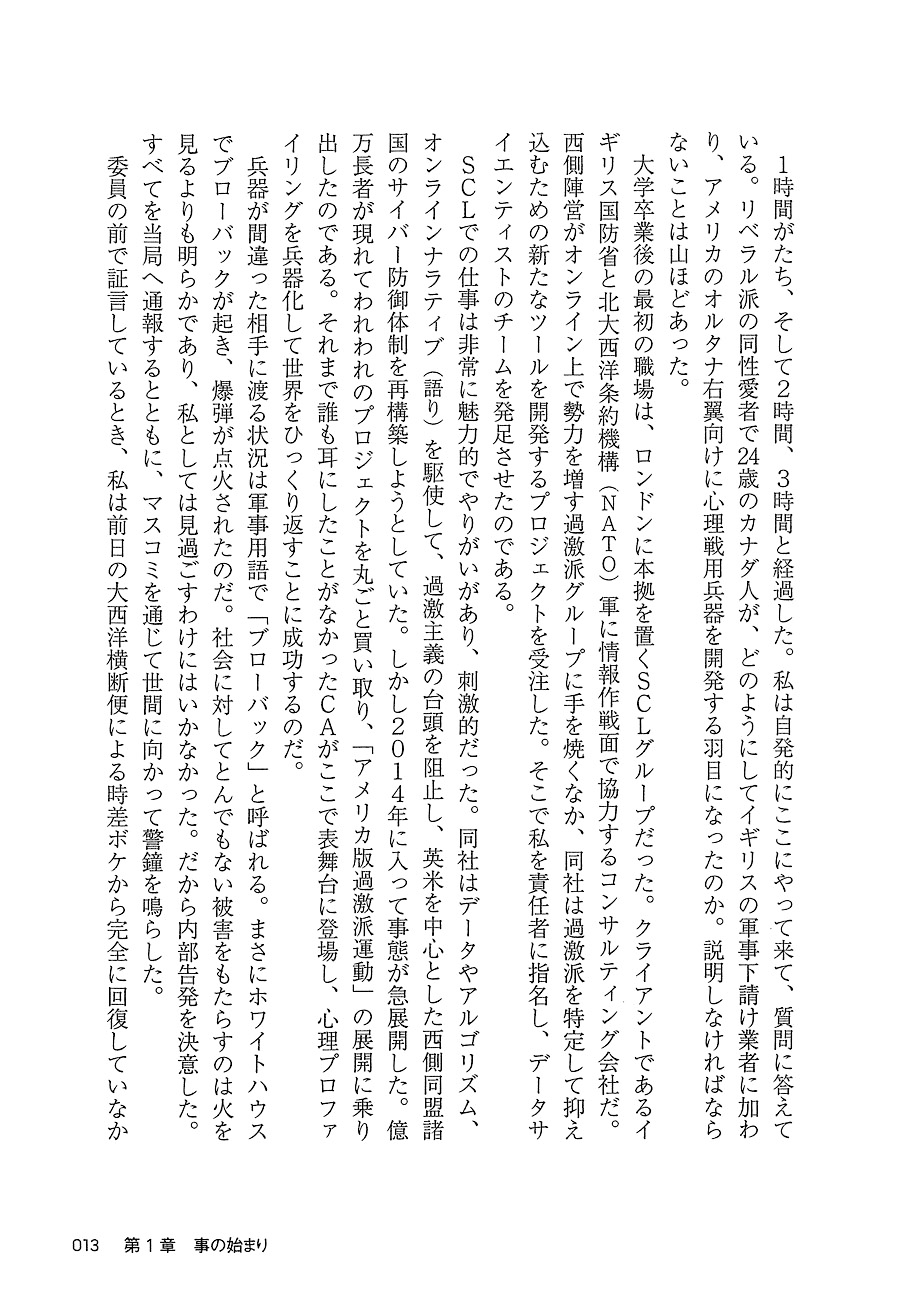 １時間がたち、そして２時間、３時間と経過した。私は自発的にここにやって来て、質問に答えて
いる。リベラル派の同性愛者で24歳のカナダ人が、どのようにしてイギリスの軍事下請け業者に加わ
り、アメリカのオルタナ右翼向けに心理戦用兵器を開発する羽目になったのか。説明しなければなら
ないことは山ほどあった。
大学卒業後の最初の職場は、ロンドンに本拠を置くＳＣＬグループだった。クライアントであるイ
ギリス国防省と北大西洋条約機構（ＮＡＴＯ）軍に情報作戦面で協力するコンサルティング会社だ。
西側陣営がオンライン上で勢力を増す過激派グループに手を焼くなか、同社は過激派を特定して抑え
込むための新たなツールを開発するプロジェクトを受注した。そこで私を責任者に指名し、データサ
イエンティストのチームを発足させたのである。
ＳＣＬでの仕事は非常に魅力的でやりがいがあり、刺激的だった。同社はデータやアルゴリズム、
オンラインナラティブ（語り）を駆使して、過激主義の台頭を阻止し、英米を中心とした西側同盟諸
国のサイバー防御体制を再構築しようとしていた。しかし２０１４年に入って事態が急展開した。億
万長者が現れてわれわれのプロジェクトを丸ごと買い取り、「アメリカ版過激派運動」の展開に乗り
出したのである。それまで誰も耳にしたことがなかったＣＡがここで表舞台に登場し、心理プロファ
イリングを兵器化して世界をひっくり返すことに成功するのだ。
兵器が間違った相手に渡る状況は軍事用語で「ブローバック」と呼ばれる。まさにホワイトハウス
でブローバックが起き、爆弾が点火されたのだ。社会に対してとんでもない被害をもたらすのは火を
見るよりも明らかであり、私としては見過ごすわけにはいかなかった。だから内部告発を決意した。
すべてを当局へ通報するとともに、マスコミを通じて世間に向かって警鐘を鳴らした。
委員の前で証言しているとき、私は前日の大西洋横断便による時差ボケから完全に回復していなか
013 第１章 事の始まり